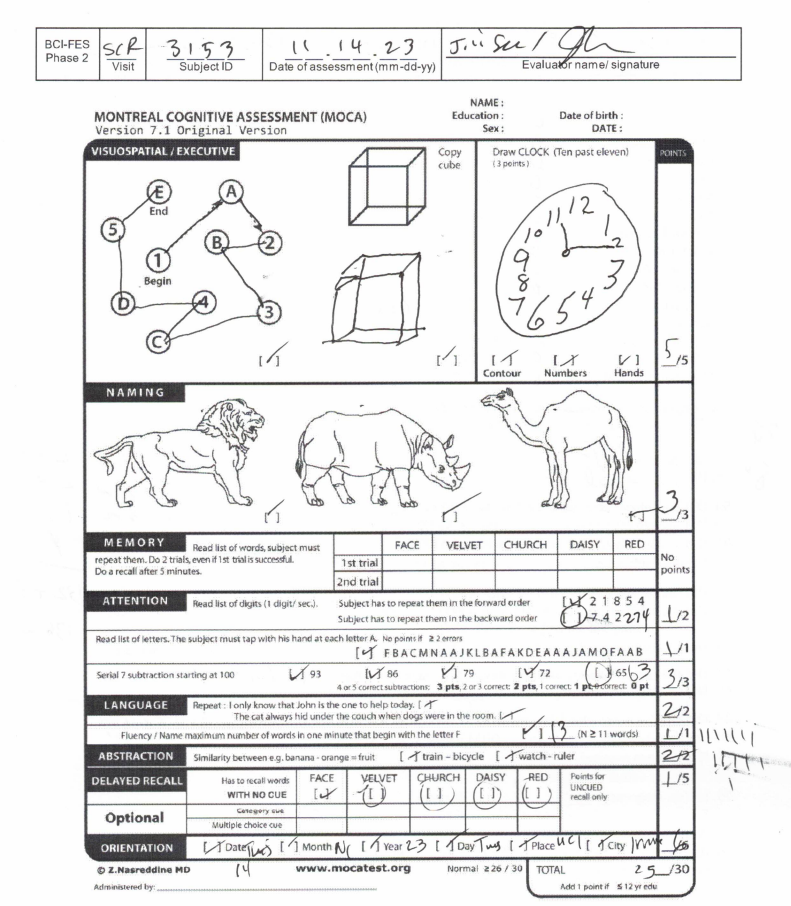 BCI-FES Phase 2
SCR
Visit
3153
Subject ID
11.14.23
Date of assessment (mm-dd-yy)
Evaluator name/ signature
MONTREAL COGNITIVE ASSESSMENT (MOCA)
Version 7.1 Original Version
NAME :
Education :
Sex :
Date of birth :
DATE :
VISUOSPATIAL / EXECUTIVE
Copy cube
Draw CLOCK (Ten past eleven)
(3 points)
POINTS
E
End
A
5
B
2
1
Begin
D
4
3
C
12
11
1
10
2
9
3
8
4
7
5
6
[✓]
[✓]
[✓] [✓] [✓]
Contour Numbers Hands
5/5
NAMING
[✓] [✓] [✓]
3/3
MEMORY
Read list of words, subject must repeat them. Do 2 trials, even if 1st trial is successful. Do a recall after 5 minutes.
FACE VELVET CHURCH DAISY RED
1st trial
2nd trial
No points
ATTENTION
Read list of digits (1 digit/ sec.).
Subject has to repeat them in the forward order [✓] 2 1 8 5 4
Subject has to repeat them in the backward order [ ] 7 4 2 274
1/2
Read list of letters. The subject must tap with his hand at each letter A. No points if ≥ 2 errors
[✓] FBACMNAAJKLBAFAKDEAAAJAMOFAAB
1/1
Serial 7 subtraction starting at 100 [✓] 93 [✓] 86 [✓] 79 [✓] 72 [ ] 65 63
4 or 5 correct subtractions: 3 pts, 2 or 3 correct: 2 pts, 1 correct: 1 pt, 0 correct: 0 pt
3/3
LANGUAGE
Repeat : I only know that John is the one to help today. [✓]
The cat always hid under the couch when dogs were in the room. [✓]
2/2
Fluency / Name maximum number of words in one minute that begin with the letter F [✓] 13 (N ≥ 11 words)
1/1
ABSTRACTION
Similarity between e.g. banana - orange = fruit [✓] train – bicycle [✓] watch - ruler
2/2
DELAYED RECALL
Has to recall words
WITH NO CUE
FACE VELVET CHURCH DAISY RED
[✓] [ ] [ ] [ ] [ ]
Points for UNCUED recall only
1/5
Optional
Category cue
Multiple choice cue
ORIENTATION
[✓] Date [✓] Month [✓] Year 23 [✓] Day Tues [✓] Place UCI [✓] City
/6
14
© Z.Nasreddine MD
www.mocatest.org
Normal ≥ 26 / 30
TOTAL
25/30
Administered by:
Add 1 point if ≤ 12 yr edu